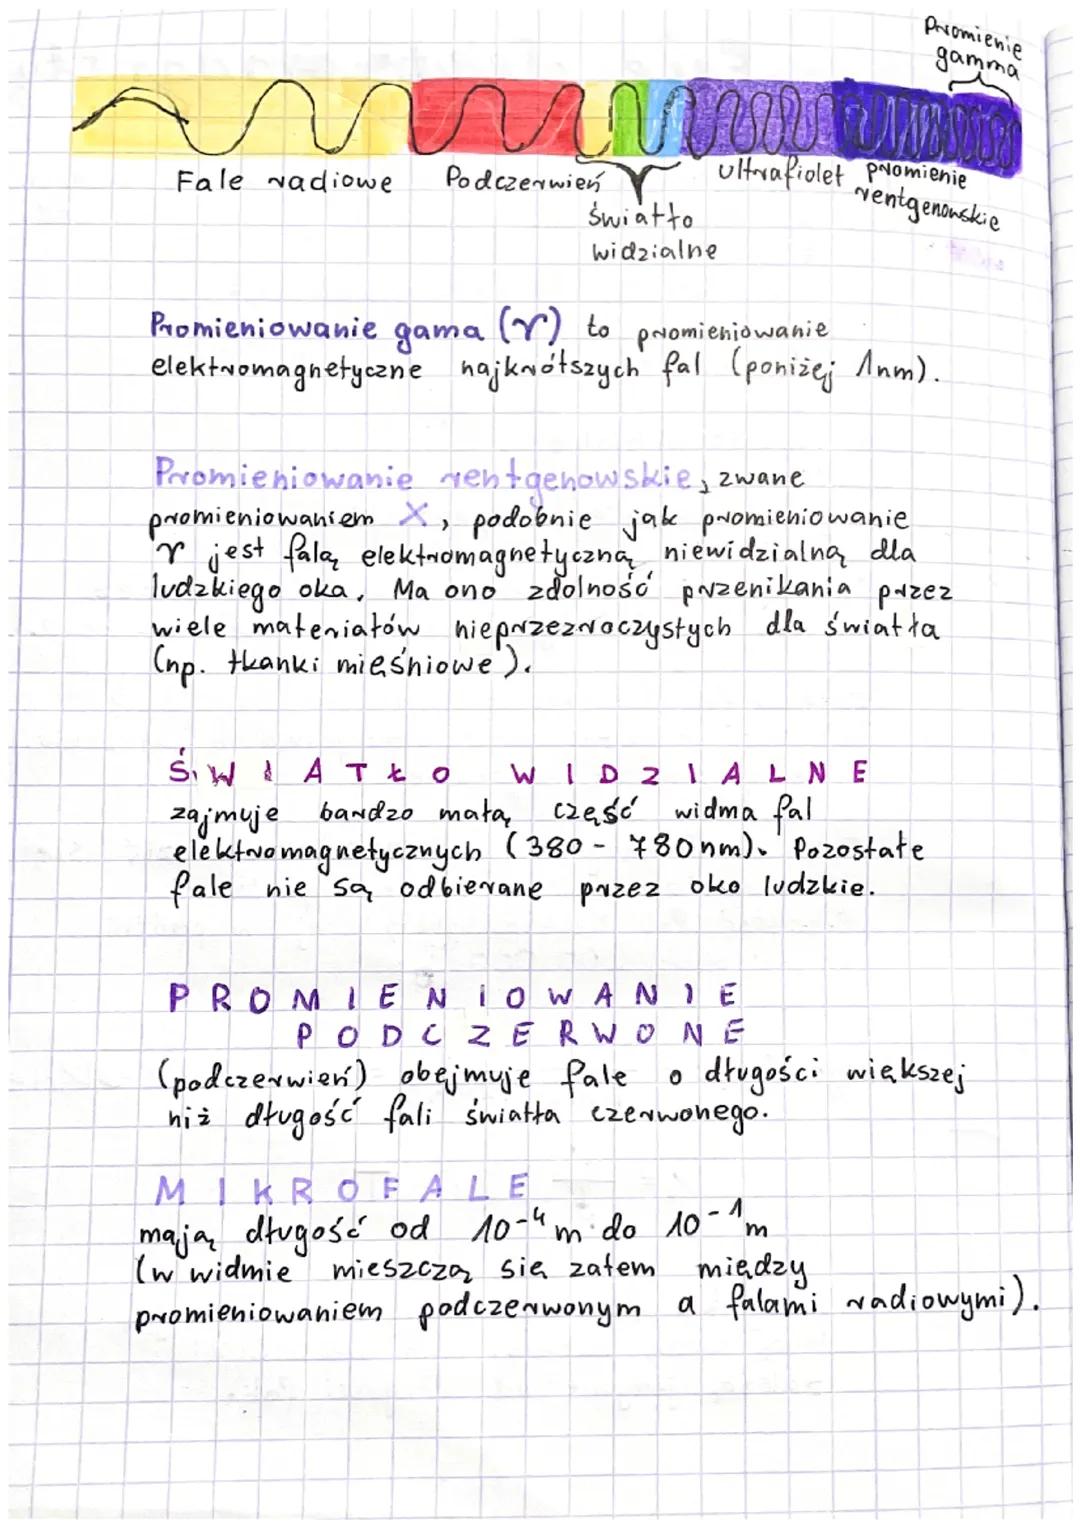 Promienie
gamma
Fale radiowe Podczerwień ultrafiolet promienie
rentgenowskie
światło
widzialne
Promieniowanie gama (γ) to promieniowanie
elektromagnetyczne najkrótszych fal (poniżej 1nm).
Promieniowanie rentgenowskie, zwane
promieniowaniem X, podobnie jak promieniowanie
γ jest falą elektromagnetyczną niewidzialną dla
ludzkiego oka. Ma ono zdolność przenikania przez
wiele materiałów nieprzezroczystych dla światła
(np. tkanki mięśniowe).
ŚWIATŁO WIDZIALNE
zajmuje bardzo małą część widma fal
elektromagnetycznych (380 - 780nm). Pozostałe
fale nie są odbierane przez oko ludzkie.
PROMIENIOWANIE
PODCZERWONE
(podczerwień) obejmuje fale o długości większej
niż długość fali światła czerwonego.
MIKROFALE
mają długość od 10⁻⁴ m do 10⁻¹ m
(w widmie mieszczą się zatem między
promieniowaniem podczerwonym a falami radiowymi).